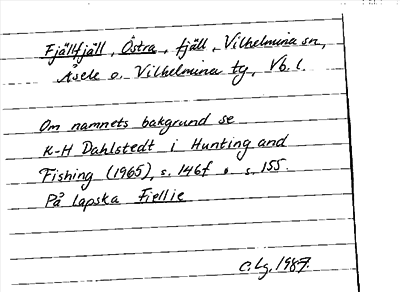 Fjällfjäll, Östra, fjäll, Vilhelmina sn,
Åsele o. Vilhelmina tg, Vb. l.
Om namnets bakgrund se
K-H Dahlstedt i Hunting and
Fishing (1965), s. 146f o s. 155.
På lapska Fiellie
C. Lg. 1987.